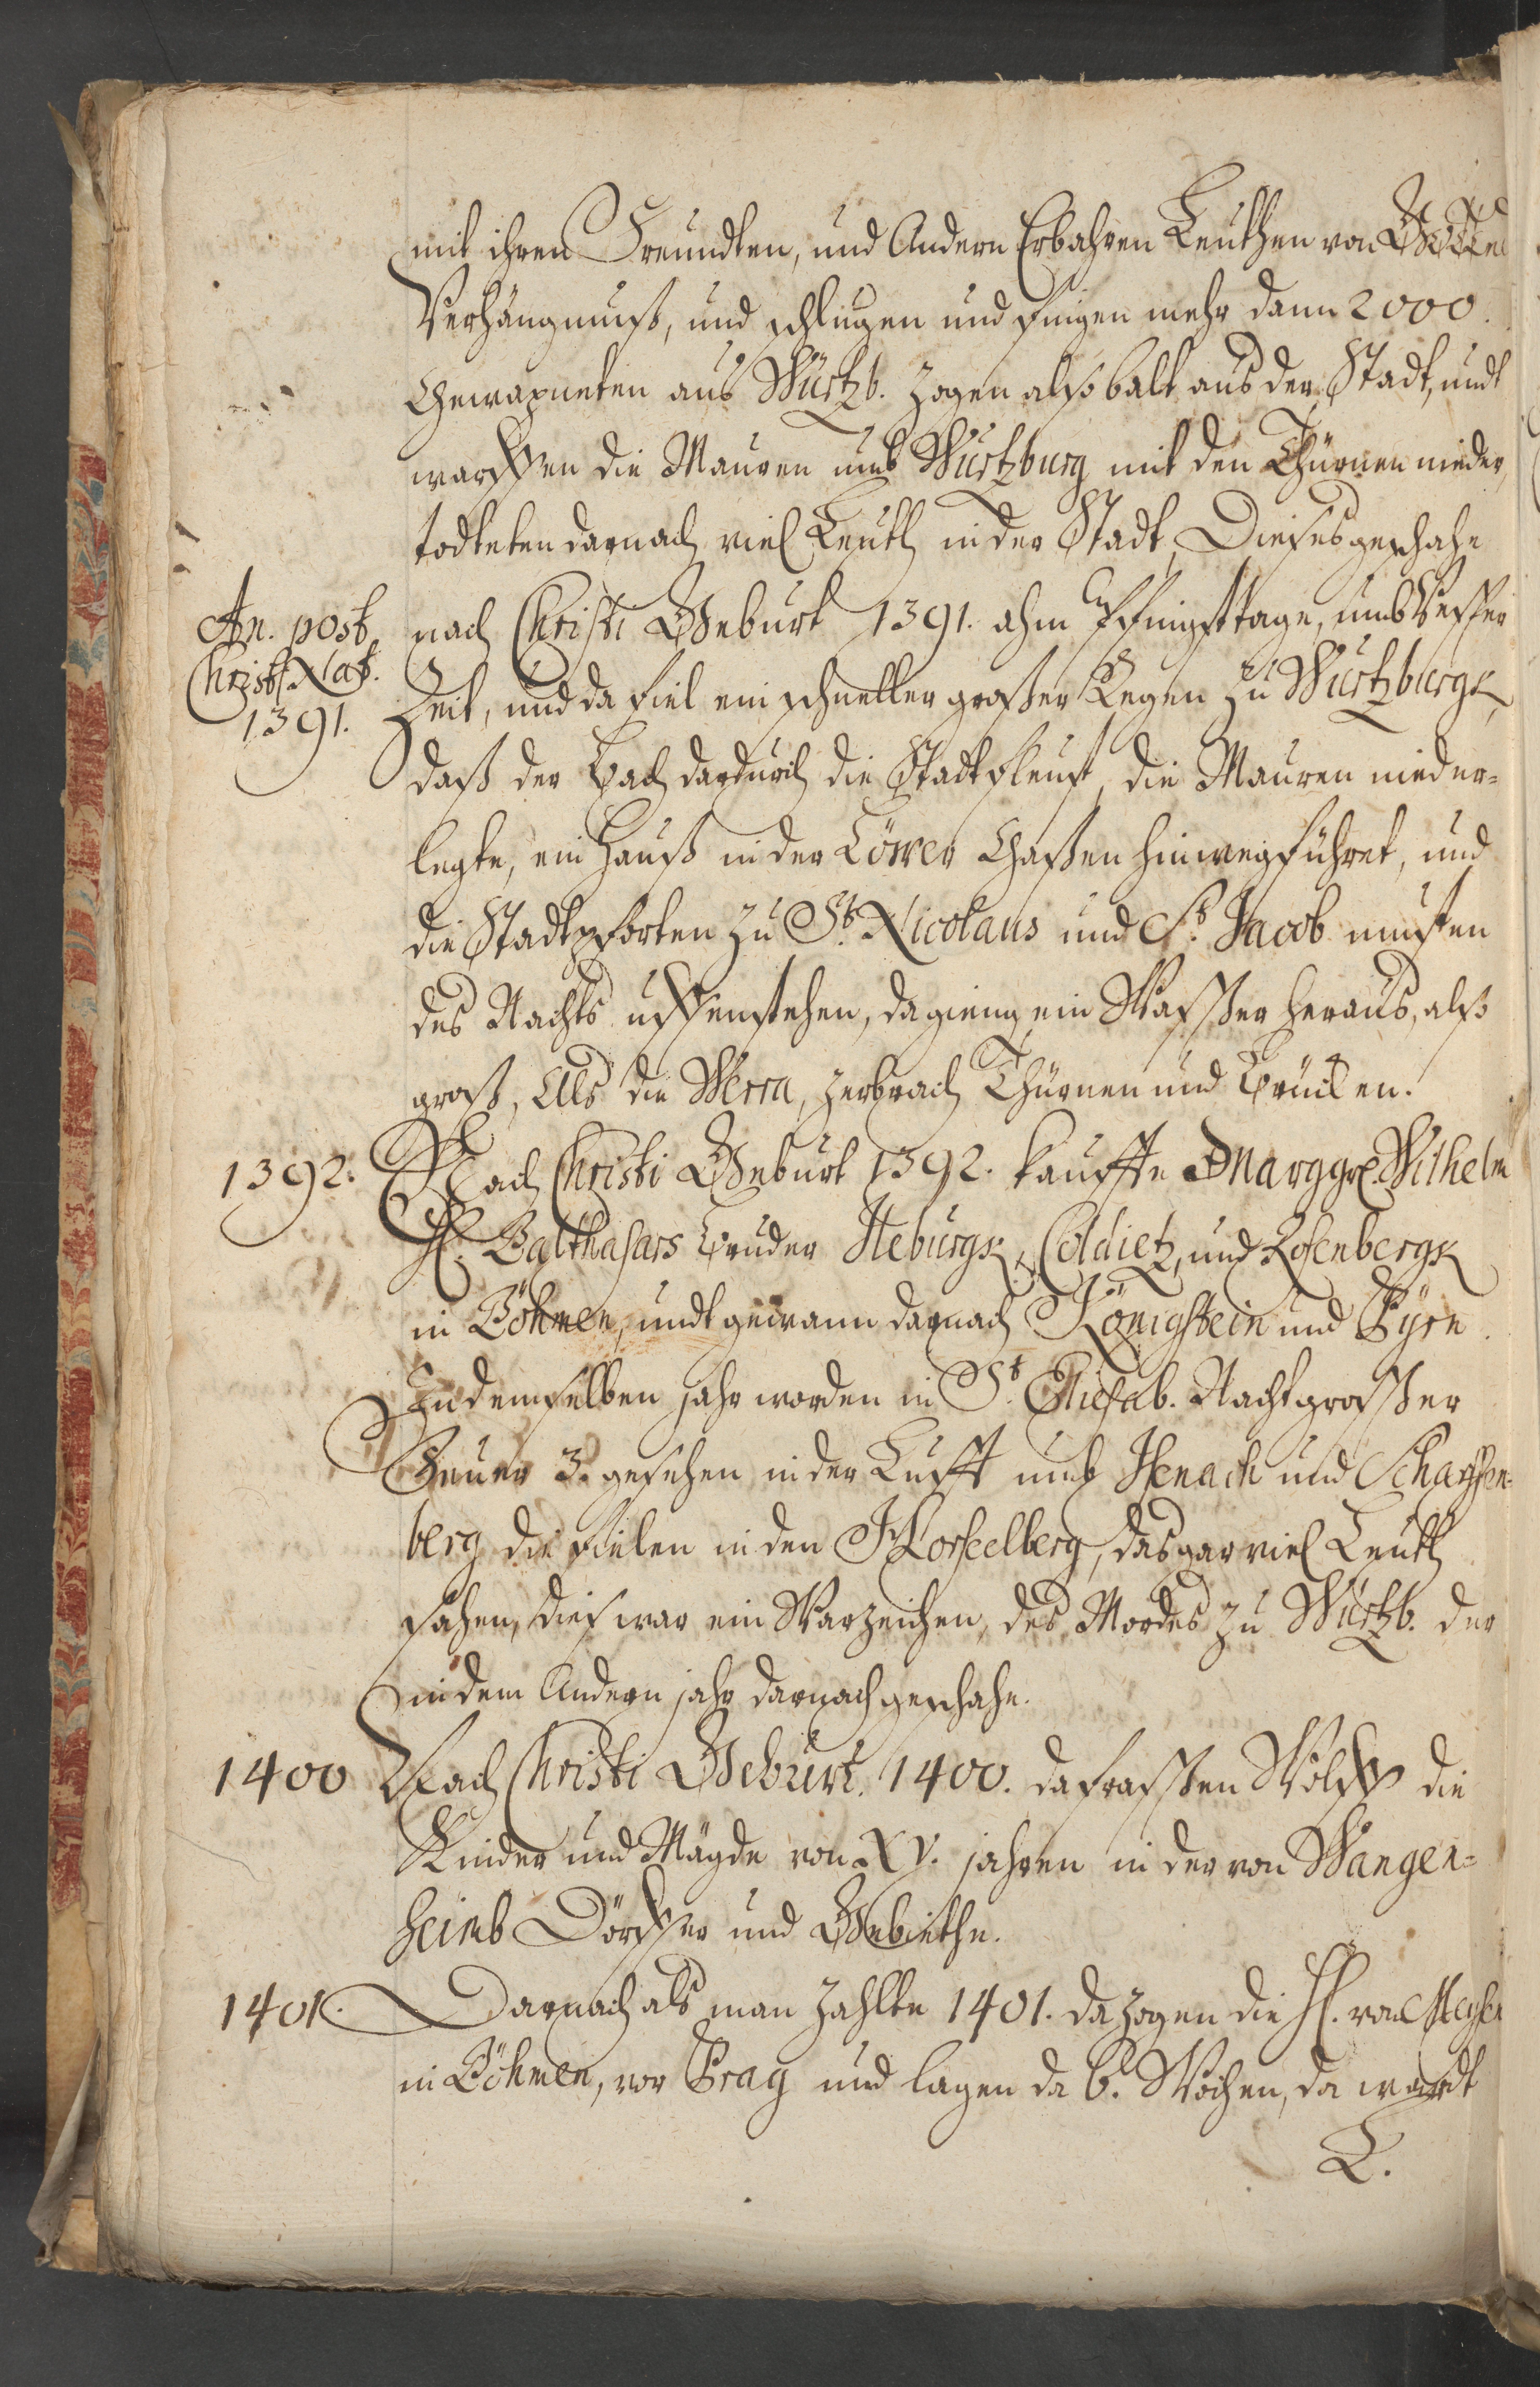 mit ihren Freundten, und Andern Erbahren Leuthen von Gottes
Verhängnuß, und schlugen und fingen mehr dann 2000.
Gewapneten aus Würtzb. zogen alßobalt aus der Stadt, undt
warffen die Mauren umb Würtzburg mit den Thürnen nieder,
todteten darnach viel Leuth in der Stadt, Dieses geschahe
An. post Christi Nat. 1391.
nach Christi Geburt 1391. ahm Pfingsttage, umb Vesper
Zeit, und da fiel ein schneller großer Regen zu Würtzburgk,
daß der Bach dardurch die Stadt fleust, die Mauren nieder-
legte, ein Hauß in der Löwer Gaßen hinwegführet, und
die Stadtpforten zu St. Nicolaus und St. Jacob musten
des Nachts uffenstehen, da gieng ein Wasser heraus, alß
groß, Als die Werra, zerbrach Thürnen und Brücken.
1392. Nach Christi Geburt 1392. kauffte Marggr. Wilhelm
H. Balthasars Bruder Ileburgk, Coldietz, und Rosenbergk
in Böhmen, undt gewann darnach Königstein und Pyrn.
In demselben jahr worden in St. Eliesab. Nacht großer
Feuer 3. gesehen in der Lufft umb Isenach und Scharffen-
berg die fielen in den Horseelberg, das gar viel Leuth
sahen, dies war ein Warzeichen, des Mordes zu Würtzb. der
in dem Andern jahr darnach geschahe.
1400 Nach Christi Geburt. 1400. da fraßen Wölff die
Kinder und Mägde von XV. jahren in der von Wangen-
heimb Dörffer und Gebiethe.
1401. Darnach als man zahlte 1401. da zogen die H. von
in Böhmen, vor Prag und lagen da 6. Wochen, da wardt